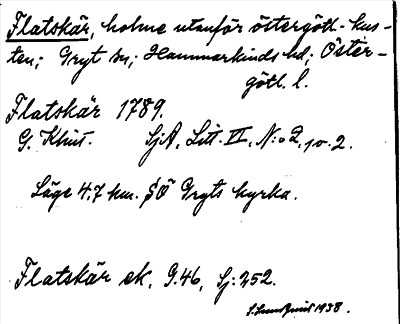 Flatskär, holme utanför östergötl. kus-
ten; Gryt sn; Hammarkinds hd; Öster-
götl. l.
Flatskär 1789.
G. Klint. SjA, Litt. II, N:o 2, 10. 2.
Läge 4,7 km. SÖ Gryts kyrka.
Flatskär ek. G.46, Sj:252.
1938.